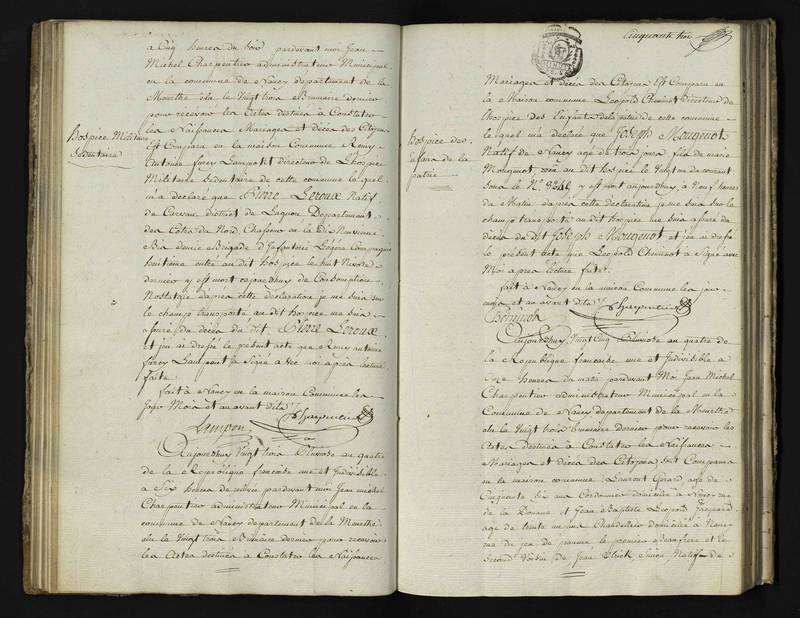 à Cinq heures du soir pardevant moi Jean
Michel Charpentier administrateur Municipal
en la commune de Nancy departement de la
Meurthe élu le Vingt trois Brumaire dernier
pour recevoir les Actes destinés à Constater
les Naissances Mariages et Décès des Citoyens
Est Comparu en la maison Commune Remy
Antoine furcy Lampont directeur de l'hospice
Militaire Sedentaire de cette commune lequel
m'a declaré que Pierre Leroux Natif
de district de Departement
des Côtes du Nord Chasseur en la Dix Neuvieme
Bis demie Brigade d'Infanterie Légère Compagnie
huitieme entré au dit hospice le huit Nivose
dernier y est mort cejourdhuy de Consomption
Nostalgie d'après cette déclaration je me suis sur
le champ transporté au dit hospice me suis
assuré du décès du dit Pierre Leroux
Et j'en ai dressé le présent acte que Remy antoine
furcy Lampont à Signé avec moi après lecture
faite
fait à Nancy en la maison Commune les
Jour Mois et an avant dits
Lampon Charpentier
Aujourdhuy Vingt trois Pluviose an quatre
de la Republique francaise une et Indivisible
à Six heures de pardevant moi Jean michel
Charpentier administrateur Municipal en la
commune de Nancy departement de la Meurthe
élu le Vingt trois Brumaire dernier pour recevoir
les Actes destinés à Constater les Naissances
Hospice Militaire
Sedentaire
Cinquante trois
Mariages et décès des Citoyens Est Comparu en
la Maison commune Léopold Directeur de
l'hospice des Enfants de la patrie de cette commune
lequel m'a déclaré que Joseph Mougenot
Natif de Nancy agé de trois jours fils de marie
Mougenot, entré au dit hospice le Vingt un du courant
sous le N° y est mort aujourdhuy, à Neuf heures
du Matin d'après cette déclaration je me suis sur le
champ transporté au dit hospice me suis assuré du
décès du dit Joseph Mougenot et j'en ai dressé
le présent acte que Léopold à Signé avec
Moi après lecture faite
fait à Nancy en la maison Commune les jour
mois et an avant dits
Charpentier
Aujourdhuy Vingt Cinq Pluviose an quatre de
la Republique francaise une et Indivisible à
Onze heures du matin pardevant Moi Jean Michel
Charpentier administrateur Municipal en la
Commune de Nancy departement de la Meurthe
élu le Vingt trois Brumaire dernier pour recevoir les
Actes destinés à Constater les Naissances
Mariages et Décès des Citoyens sont Comparus
en la maison commune Laurent Gerard agé de
Cinquante Six ans Cordonnier domicilié à Nancy rue
de la Douane et Jean Baptiste Léopold Gaspard
agé de trente ans Chandelier domicilié à Nancy
rue du jeu de paume le premier et le
Second Voisin de Jean Natif de
Hospice des
enfans de la
patrie